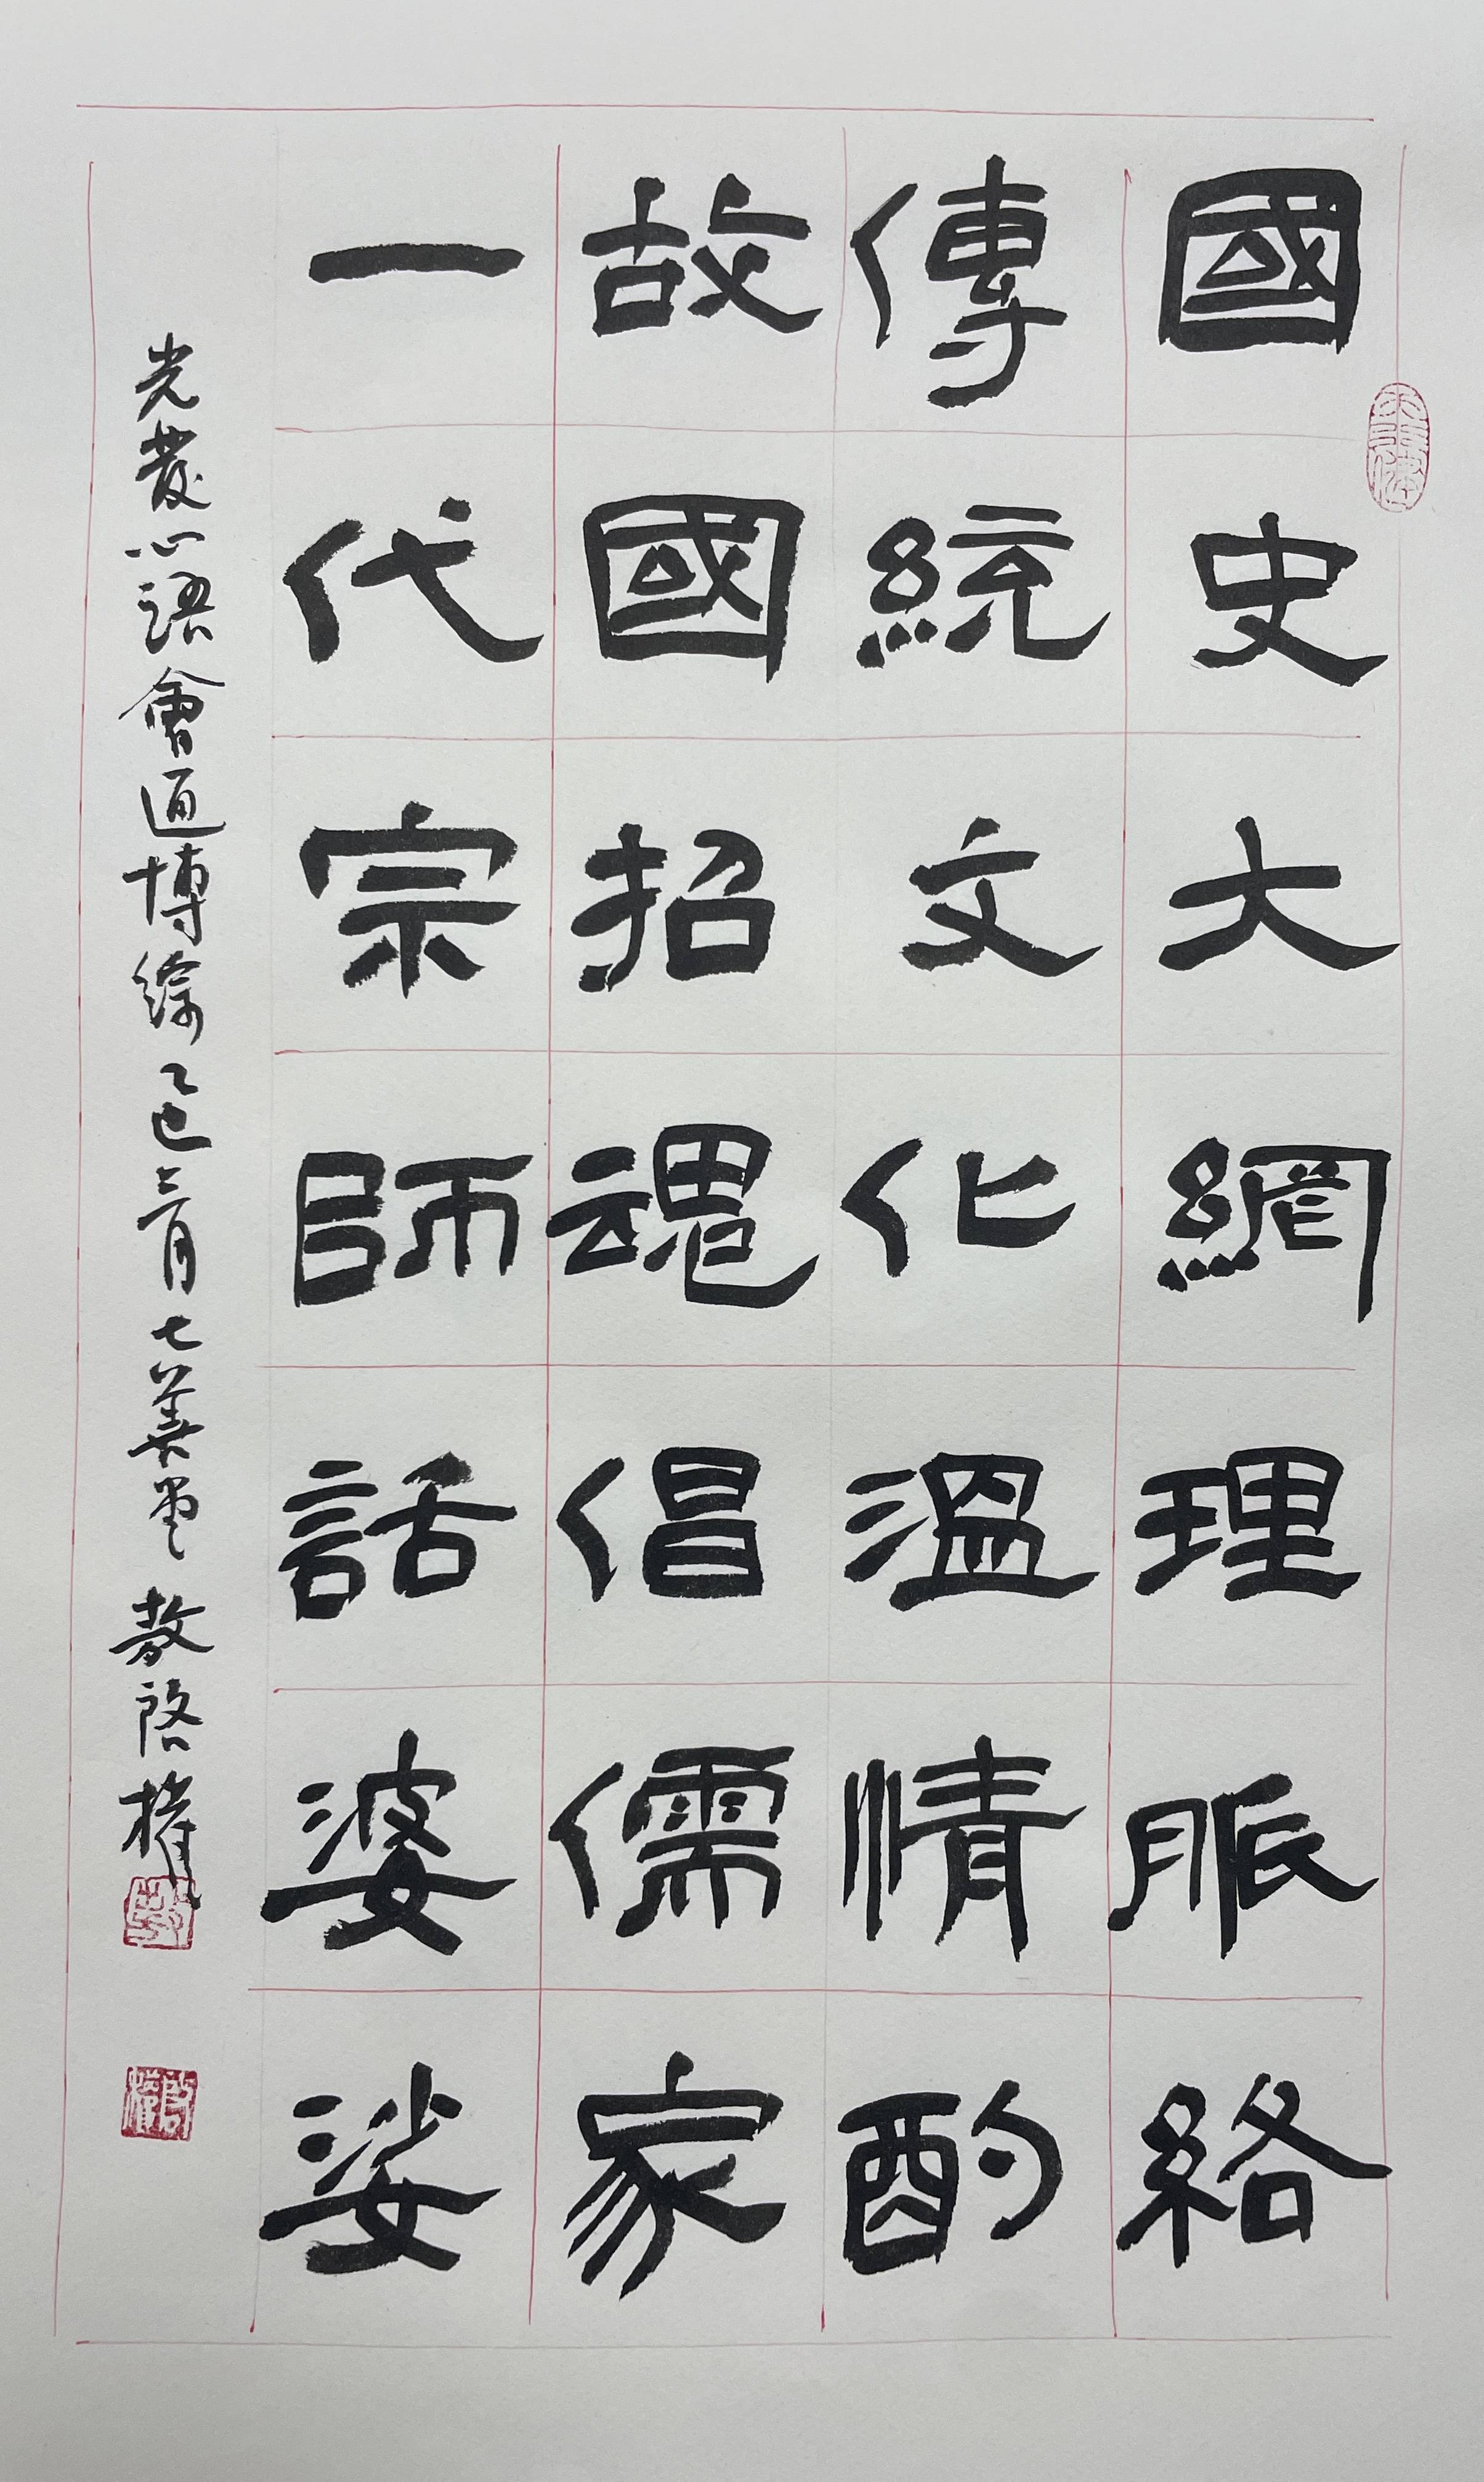 國史大網理脈絡
傳統文化溫情酌
故國招魂倡儒家
一代宗師話婆娑
光裁心語會通博綜 乙巳三月 七美堂 敖啓權